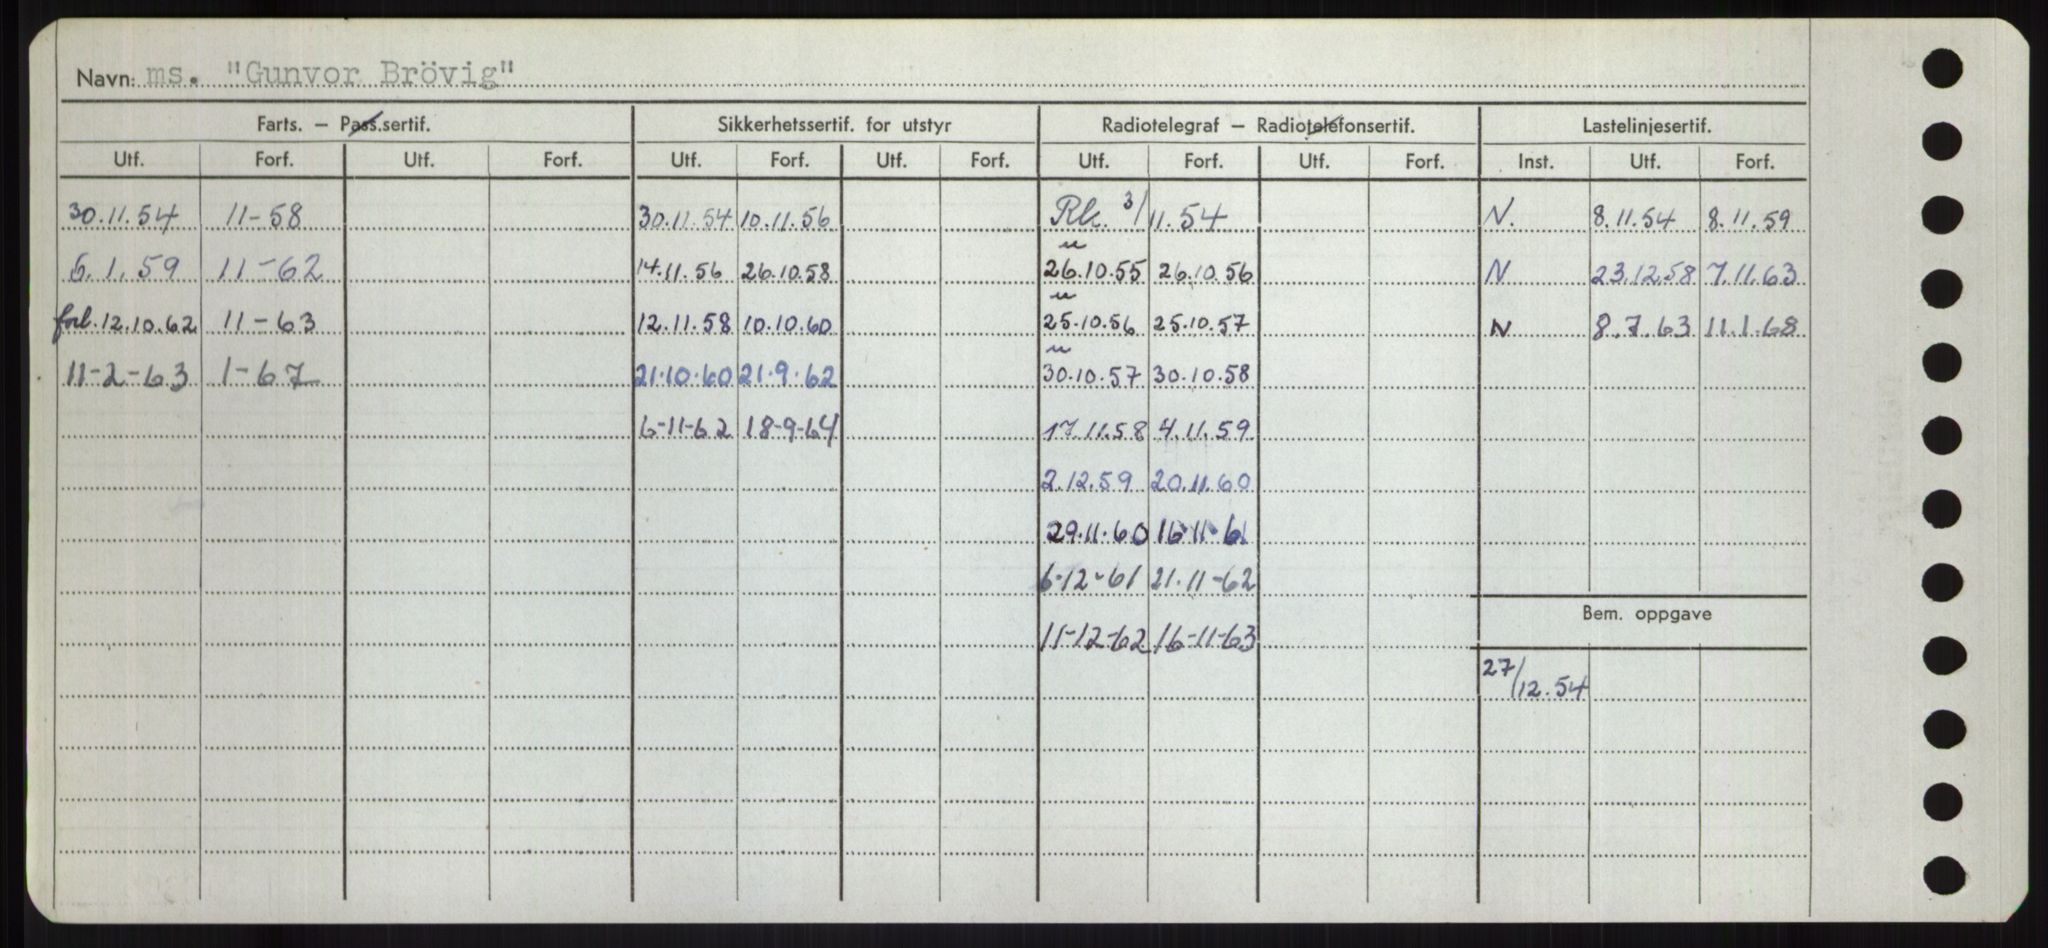 Navn: ms. "Gunvor Brövig"
Farts. — Pass.sertif. Sikkerhetssertif. for utstyr Radiotelegraf — Radiotelefonsertif. Lastelinjesertif.
Utf. Forf. Utf. Forf. Utf. Forf. Utf. Forf. Utf. Forf. Utf. Forf. Inst. Utf. Forf.
30.11.54 11-58 30.11.54 10.11.56 Rk. 3/11.54 N. 8.11.54 8.11.59
6.1.59 11-62 14.11.56 26.10.58 26.10.55 26.10.56 N 23.12.58 7.11.63
forl. 12.10.62 11-63 12.11.58 10.10.60 25.10.56 25.10.57 N 8.7.63 11.1.68
11-2-63 1-67 21.10.60 21.9.62 30.10.57 30.10.58
6-11-62 18-9-64 17.11.58 4.11.59
2.12.59 20.11.60
29.11.60 16.11.61
6-12-61 21.11-62
Bem. oppgave
11-12-62 16-11-63
27/12.54